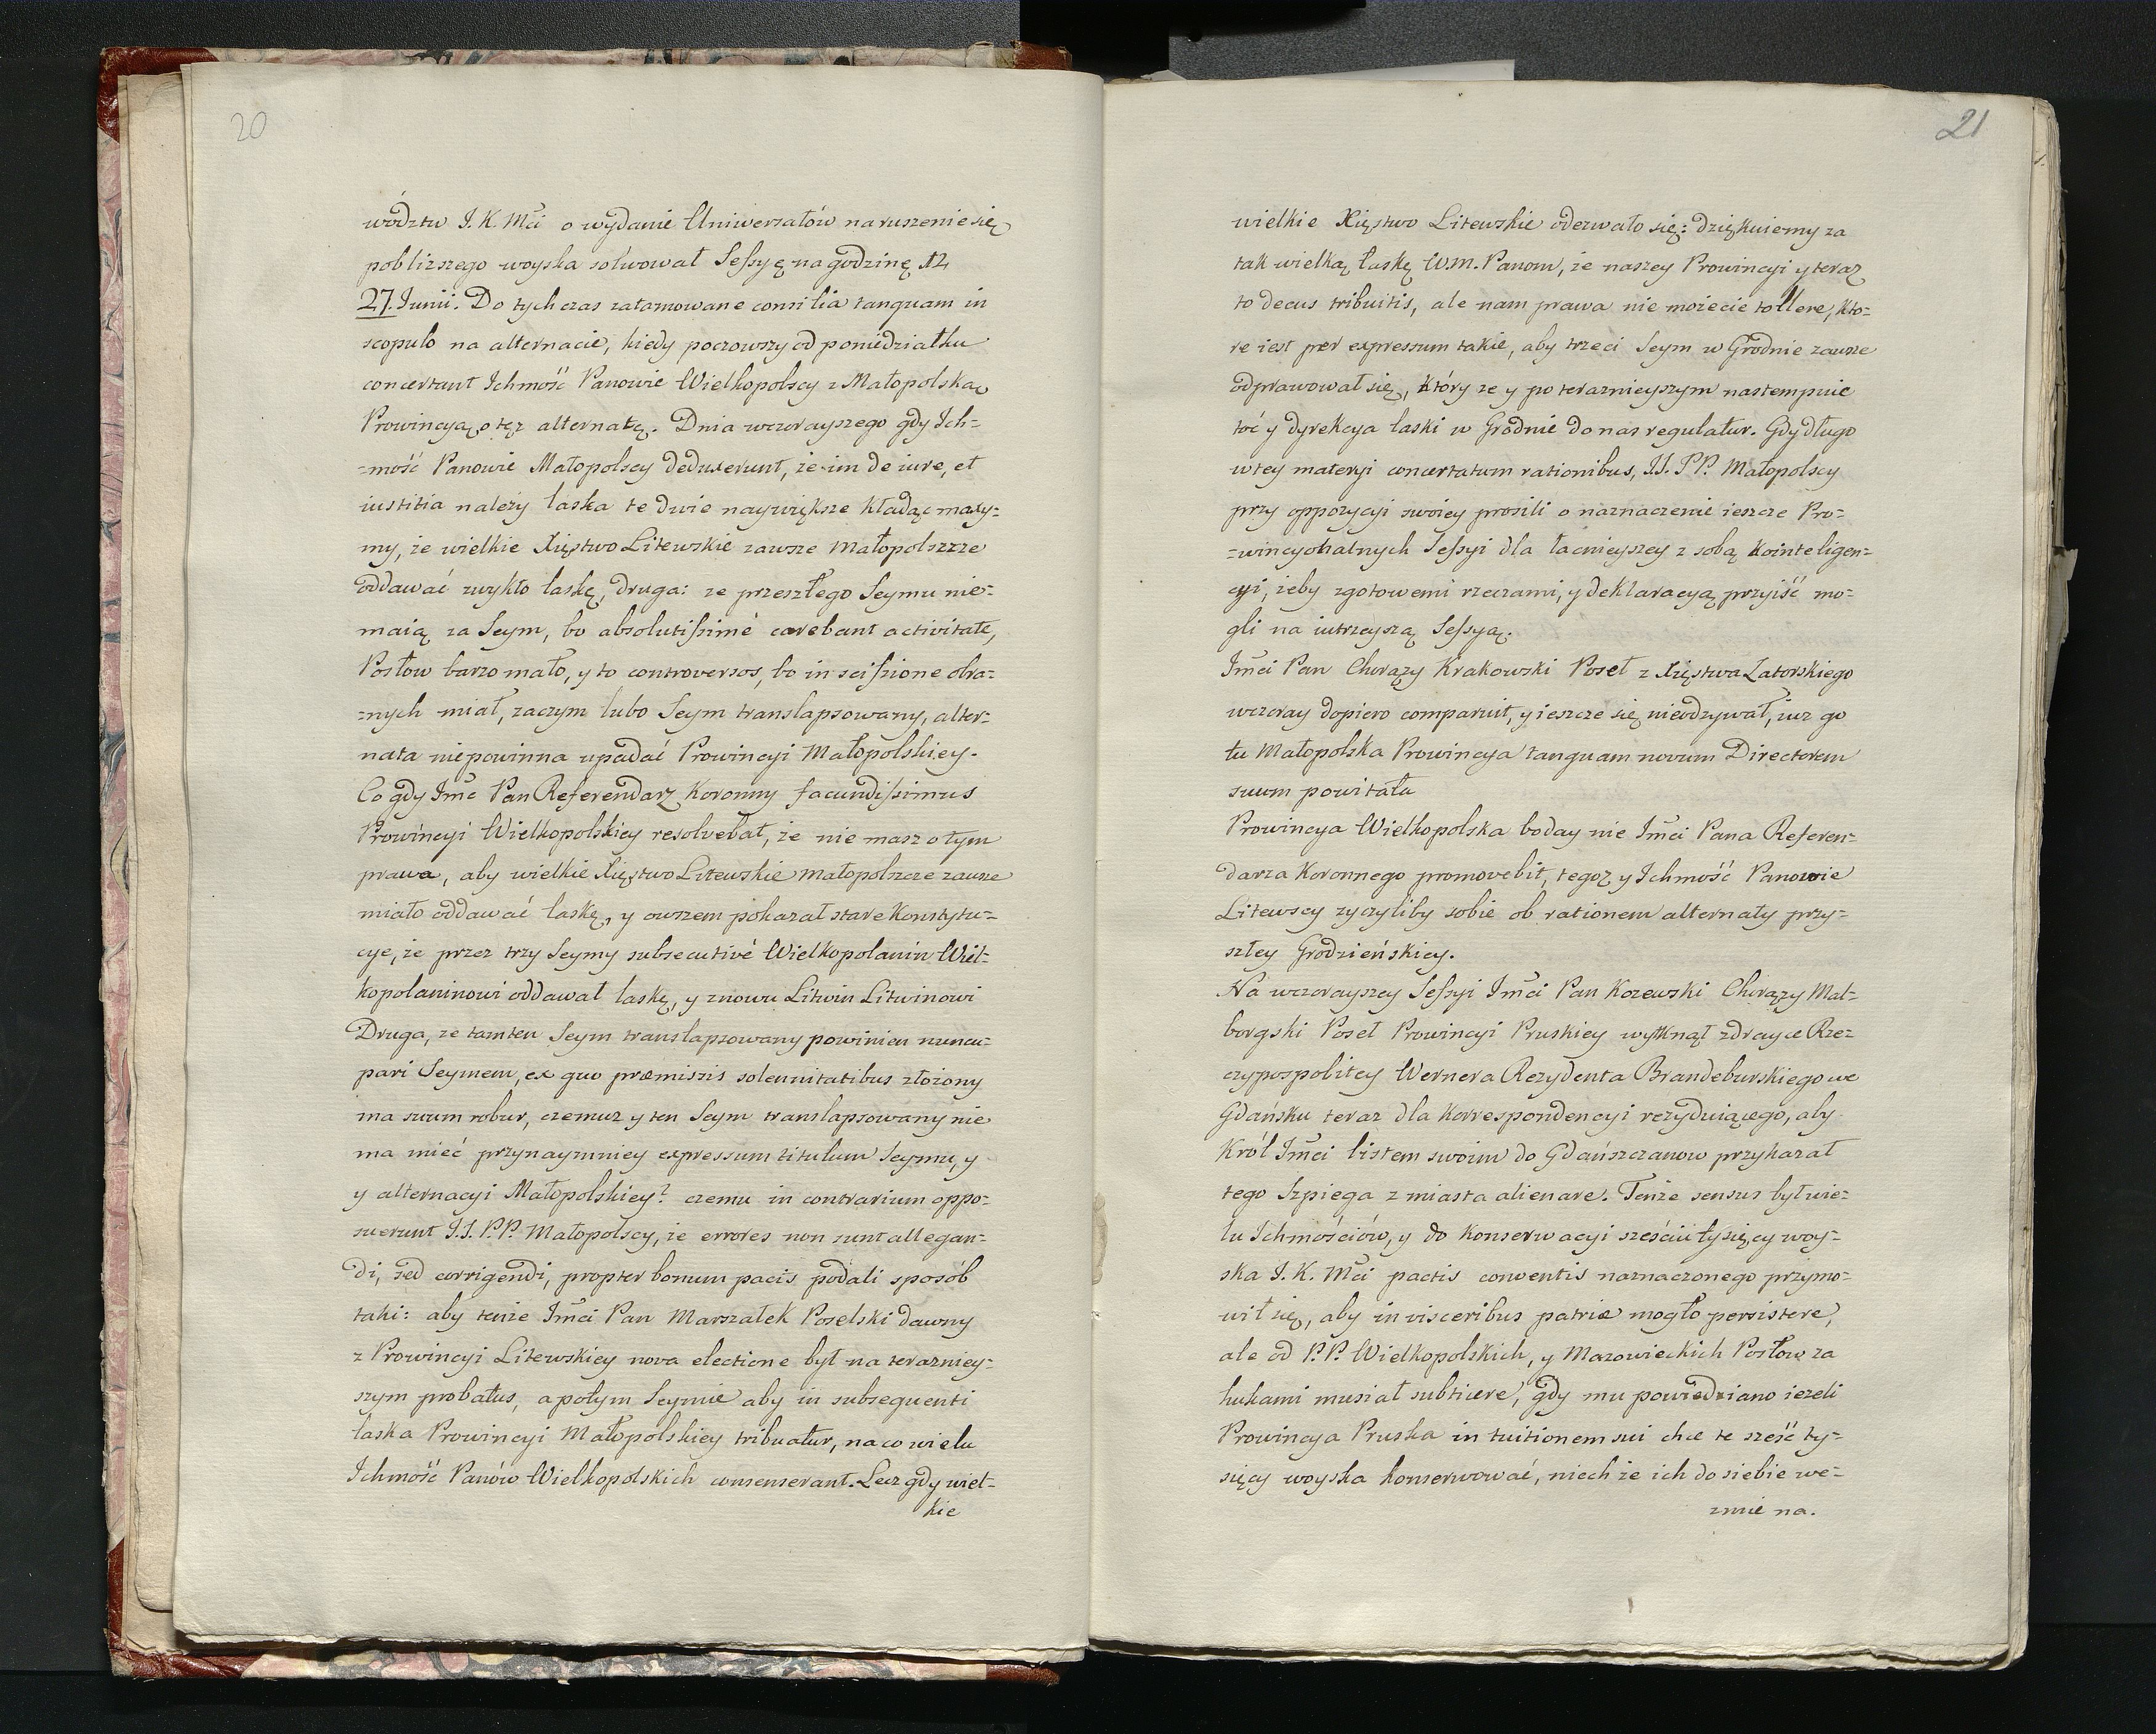 20
wództw J. K. Mći o wydanie Uniwersałów na ruszenie się
pobliższego woyska solwował Sessyę na godzinę 12
27. Junii. Do tych czas zatamowane consilia tanquam in
scopulo na alternacie, kiedy począwszy od poniedziałku
concertant Ichmość Panowie Wielkopolscy z Małopolską
Prowincyą o tęż alternatę. Dnia wczorayszego gdy Ich=
=mość Panowie Małopolscy deduxerunt, że im de iure, et
iustitia należy laska te dwie naywiększe kładąc maxy=
my, że wielkie Xięstwo Litewskie zawsze Małopolszcze
oddawać zwykło laskę, druga: ze przeszłego Seymu nie=
maią za Seym, bo absolutissimè carebant activitate,
Posłow barzo mało, y to controversos, bo in scissione obra=
=nych miał, zaczym lubo Seym translapsowany, alter=
nata niepowinna upadać Prowincyi Małopolskiey.
Co gdy Imć Pan Referendarz Koronny facundissimus
Prowincyi Wielkopolskiey resolvebat, że nie masz o tym
prawa, aby wielkie Xięstwo Litewskie małopolszcze zawsze
miało oddawać laskę, y owszem pokazał stare Konstytu=
cye, że przez trzy Seymy subsecutivé Wielkopolanin Wiel=
kopolaninowi oddawał laskę, y znowu Litwin Litwinowi
Druga, ze tamten Seym translapsowany powinien nuncu=
pari Seymem, ex quo præmissis solennitatibus złożony
ma suum robur, czemuz y ten Seym translapsowany nie
ma mieć przynaymniey expressum titulum Seymu, y
y alternacyi Małopolskiey? czemu in contrarium oppo=
suerunt J.J. P.P. Małopolscy, że errores non sunt allegan=
di, sed corrigendi, propter bonum pacis podali sposób
taki: aby tenże Imći Pan Marszałek Poselski dawny
z Prowincyi Litewskiey nova electione był na terazniey=
szym probatus, a potym Seymie aby in subsequenti
laska Prowincyi Małopolskiey tribuatur, na co wielu
Ichmość Panów Wielkopolskich consenserant. Lecz gdy wiel=
kie
21
wielkie Xięstwo Litewskie odezwało się: dziękuiemy za
tak wielką łaskę W.M. Panom, że naszey Prowincyi y teraz
to decus tribuitis, ale nam prawa nie możecie tollere, kto=
re iest per expressum takie, aby trzeci Seym w Grodnie zawsze
odprawował się, który ze y po teraznieyszym nastempuie
toć y dyrekcya laski w Grodnie do nas regulatur. Gdy długo
w tey materyi concertatum rationibus, J.J. PP. Małopolscy
przy oppozycyi swoiey prosili o naznaczenie ieszcze Pro=
=wincyonalnych Sessyi dla łacnieyszey z sobą kointeligen=
cyi, żeby z gotowemi rzeczami, y deklaracyą przyiść mo=
gli na iutrzeyszą Sessyą.
Imći Pan Chorąży Krakowski Poseł z Xięstwa Zatorskiego
wczoray dopiero comparuit, y ieszcze się nieodzywał, iuz go
tu Małopolska Prowincya tanquam novum Directorem
suum powitała
Prowincya Wielkopolska boday nie Imći Pana Referen=
darza Koronnego promovebit, tegoz y Ichmość Panowie
Litewscy zyczyliby sobie ob rationem alternaty przy=
szłey Grodzieńskiey.
Na wczorayszey Sessyi Imći Pan Kozewski Chorąży Mal=
borgski Poseł Prowincyi Pruskiey wytknął zdrayce Rze=
czypospolitey Wernera Rezydenta Brandeburskiego we
Gdańsku teraz dla korrespondencyi rezyduiącego, aby
Król Imći listem swoim do Gdańszczanow przykazał
tego Szpiega z miasta alienare. Tenże sensus był wie=
lu Ichmościów, y do konserwacyi sześciu tysięcy woy=
ska J. K. Mći pactis conventis naznaczonego przymo=
wił się, aby in visceribus patriæ mogło persistere,
ale od P.P. Wielkopolskich, y Mazowieckich Posłow za
hukami musiał subticere, gdy mu powiedziano ieżeli
Prowincya Pruska in tuitionem sui chce te sześć ty=
sięcy woyska konserwować, niech że ich do siebie we=
zmie na.